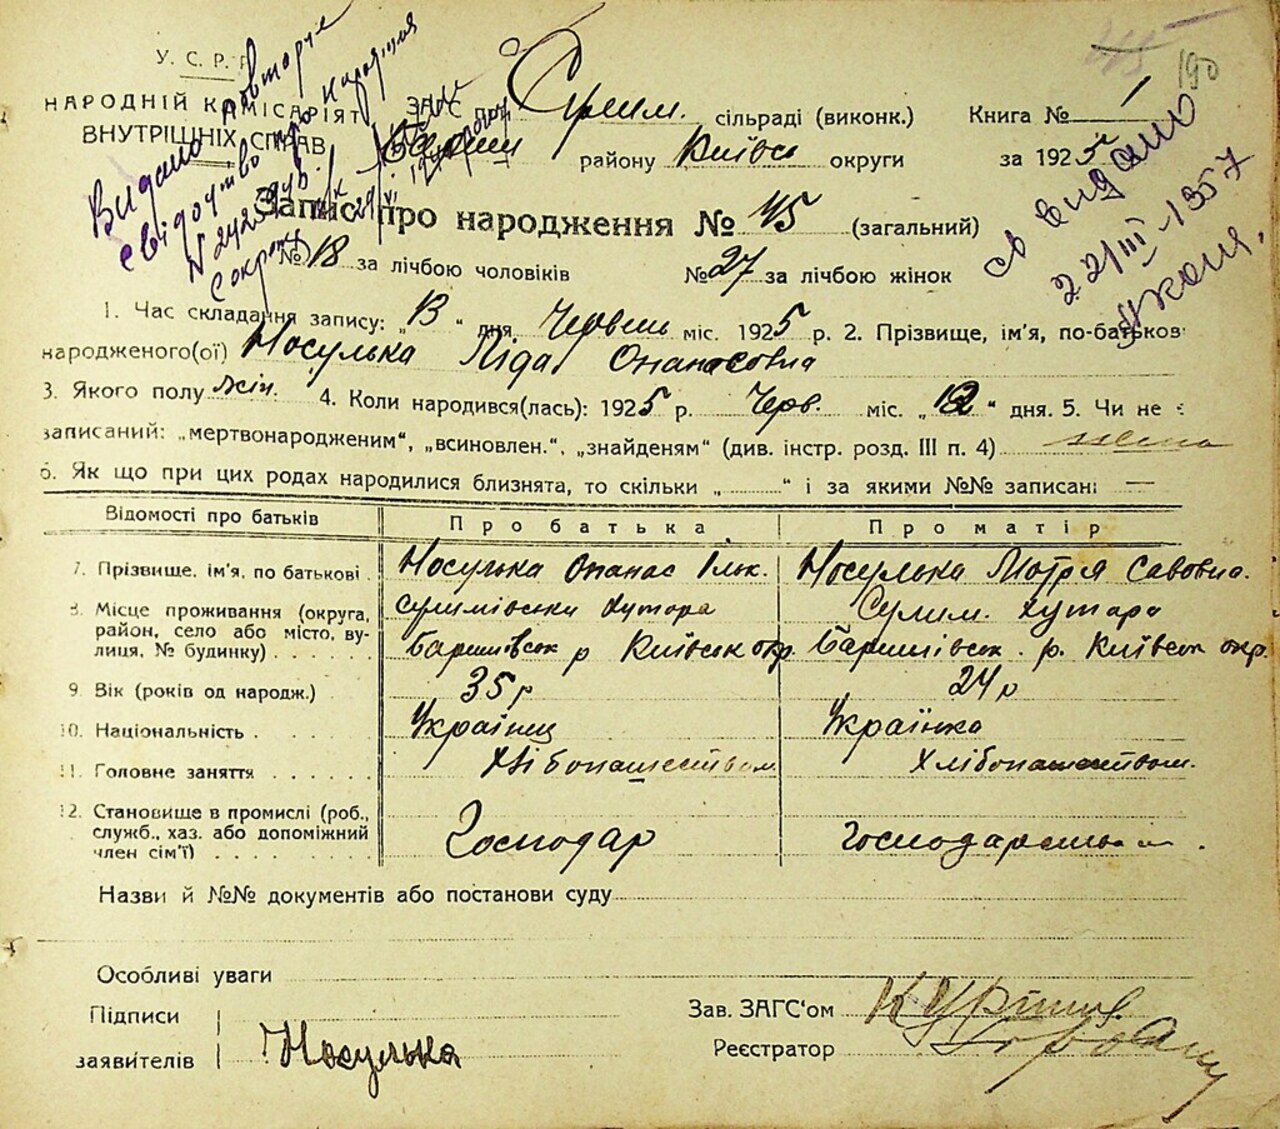 У. С. Р. Р.
НАРОДНІЙ КОМІСАРІЯТ
ВНУТРІШНІХ СПРАВ
Видано повторне
свідоцтво про народження
св видано
22/III-1957
190
ЗАГС при Сулим. сільраді (виконк.) Книга № 1
Бариш району Київськ округи за 1925
Запис про народження № 45 (загальний)
№ 18 за лічбою чоловіків № 27 за лічбою жінок
1. Час складання запису: „13“ дня Червень міс. 1925 р. 2. Прізвище, ім'я, по-батьков
народженого(ої) Носулька Ліда Опанасовна
3. Якого полу жін. 4. Коли народився(лась): 1925 р. Черв. міс. „12“ дня. 5. Чи не є
записаний: „мертвонародженим“, „всиновлен.“, „знайденям“ (див. інстр. розд. III п. 4)
6. Як що при цих родах народилися близнята, то скільки „ “ і за якими №№ записані —
Відомості про батьків Про батька Про матір
7. Прізвище, ім'я, по батькові Носулька Опанас Ільк. Носулька Мотря Савовна.
8. Місце проживання (округа, Сулимівськи хутора Сулим. хутара
район, село або місто, ву- Баришівськ р Київськ окр. Баришівськ. р. Київськ окр.
лиця, № будинку)
9. Вік (років од народж.) 35 р 24 р
10. Національність Українец Українка
11. Головне заняття Хлібопашеством Хлібопашеством.
12. Становище в промислі (роб.,
служб., хаз. або допоміжний Господар Господарством.
член сім'ї)
Назви й №№ документів або постанови суду
Особливі уваги
Підписи
заявителів Носулька
Зав. ЗАГС'ом
Реєстратор